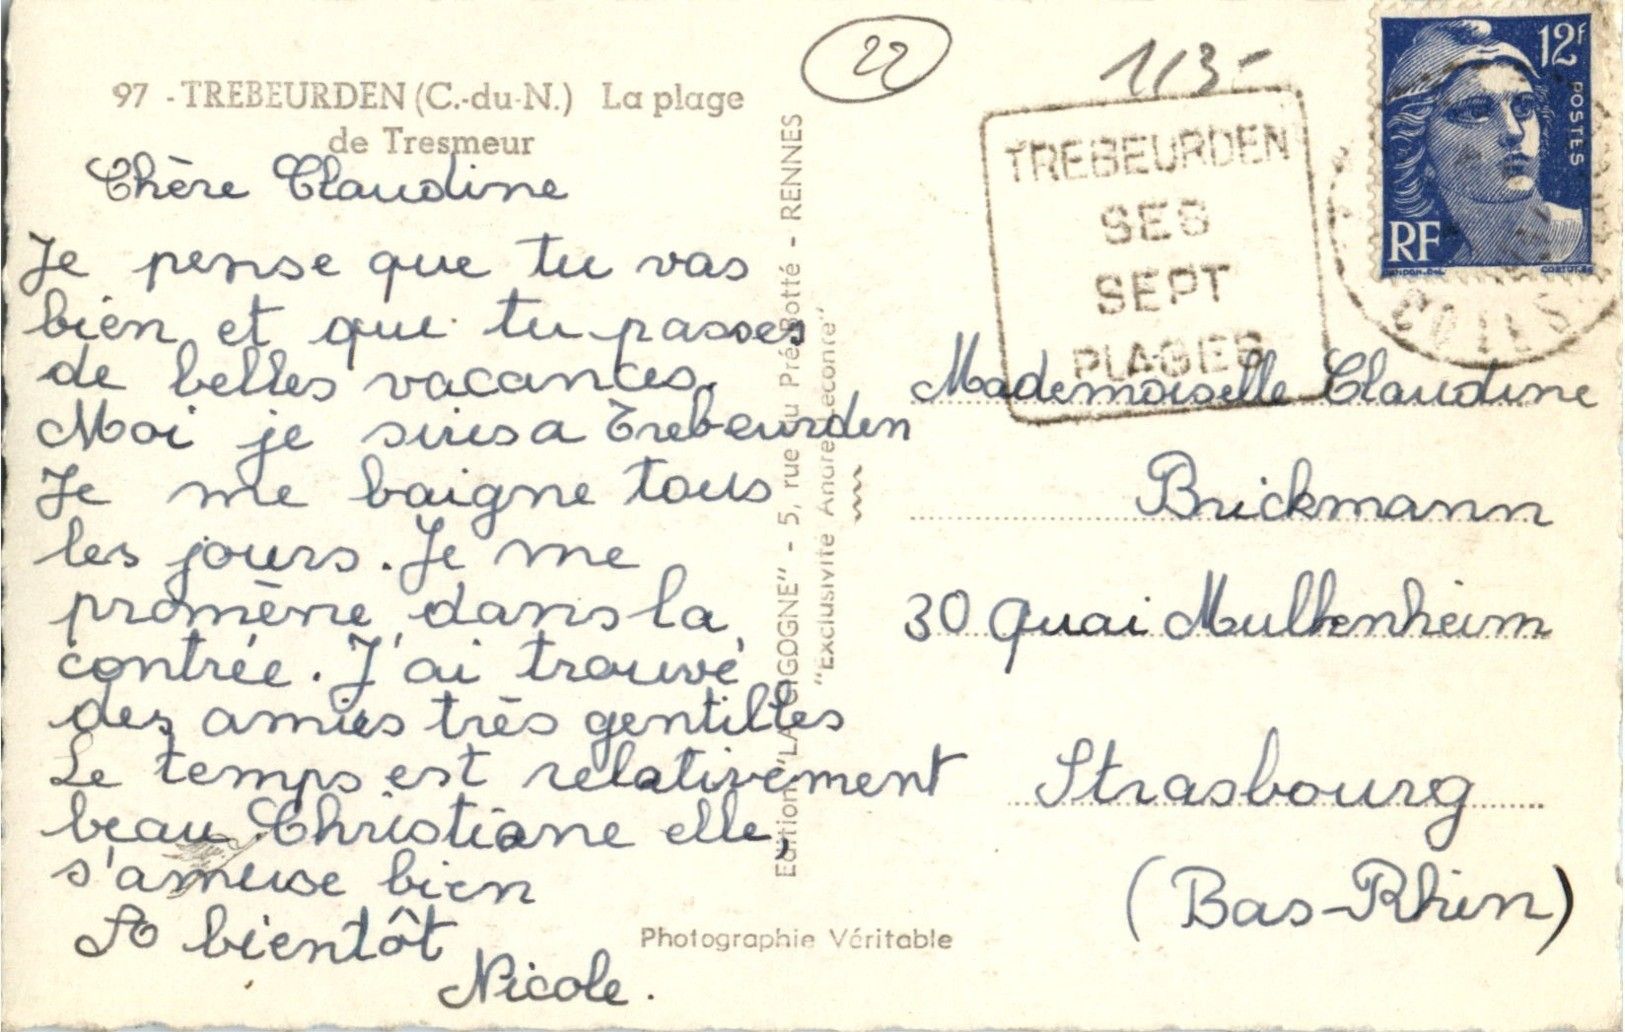 22
1/3-
97 - TREBEURDEN (C.-du-N.) La plage
de Tresmeur
Chère Claudine
Je pense que tu vas
bien et que tu passes
de belles vacances.
Moi je suis a Trebeurden
Je me baigne tous
les jours. Je me
promène dans la
contrée. J'ai trouvé
des amies très gentilles
Le temps est relativement
beau. Christiane elle,
s'amuse bien
A bientôt
Nicole.
Photographie Véritable
Edition "LA CIGOGNE" - 5, rue du Pré-Botté - RENNES
"Exclusivité André Leconte"
TREBEURDEN
SES
SEPT
PLAGES
12F
POSTES
RF
GANDON.DEL.
CORTOT.SC
Mademoiselle Claudine
Brickmann
30 Quai Mullenheim
Strasbourg
(Bas-Rhin)